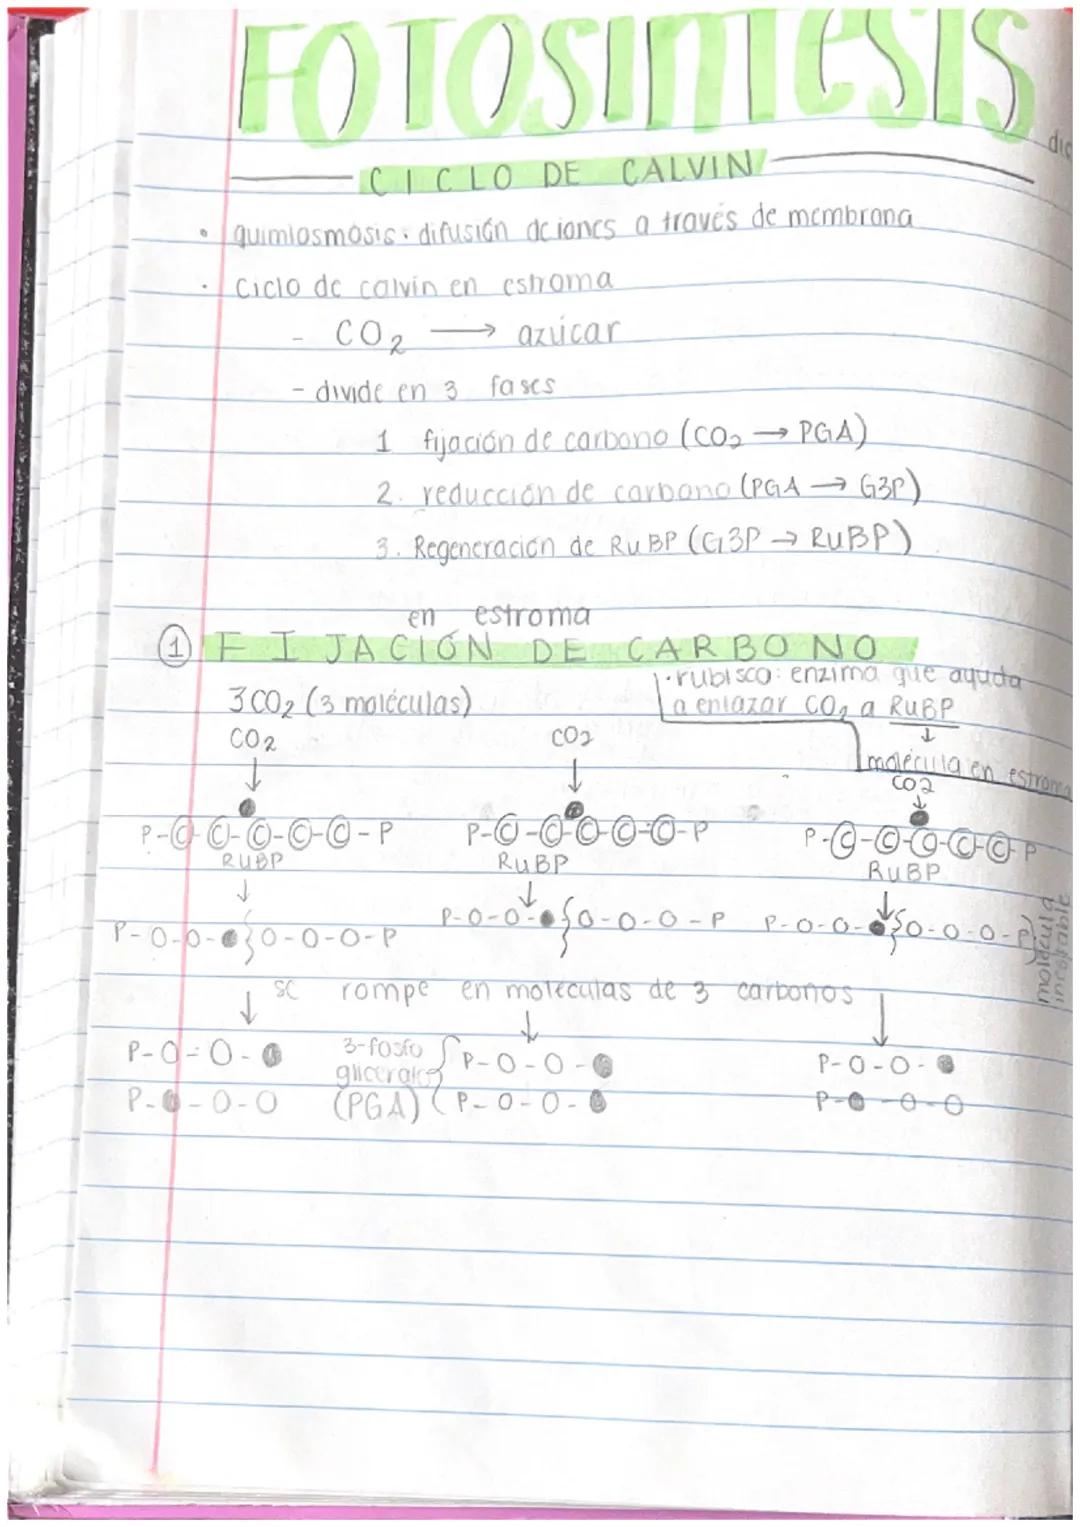 FOTOSINTESIS
CICLO DE CALVIN
• quimiosmosis: difusión de iones a través de membrana
• Ciclo de calvin en estroma
- CO₂ → azúcar
- divide en 3 fases
1 fijación de carbono (CO₂ → PGA)
2. reducción de carbono (PGA → G3P)
3. Regeneración de RuBP (G3P → RuBP)
en estroma
① FIJACIÓN DE CARBONO
• rubisco: enzima que ayuda
a enlazar CO₂ a RuBP
↓
molécula en estroma
3CO₂ (3 moléculas)
CO₂ CO₂ CO₂
↓ ↓ ↓
P-©-©-©-©-©-P P-©-©-©-©-©-P P-©-©-©-©-©-P
RUBP RuBP RuBP
↓ ↓ ↓
P-O-O-●}O-O-O-P P-O-O-●}O-O-O-P P-O-O-●}O-O-O-P}
molécula
inestable
se rompe en moléculas de 3 carbonos
↓ ↓ ↓
P-O-O-● 3-fosfo { P-O-O-● P-O-O-●
P-●-O-O (PGA) { P-O-O-● P-●-O-O